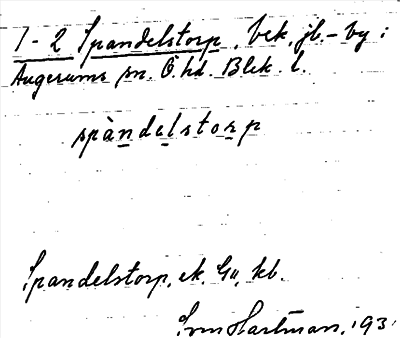 1-2 Spandelstorp, bek. jb.-by i
Augerums sn. Ö. hd. Blek. l.
spàndelstorp
Spandelstorp, ek. Gu, kb.
Sven Hartman, 193